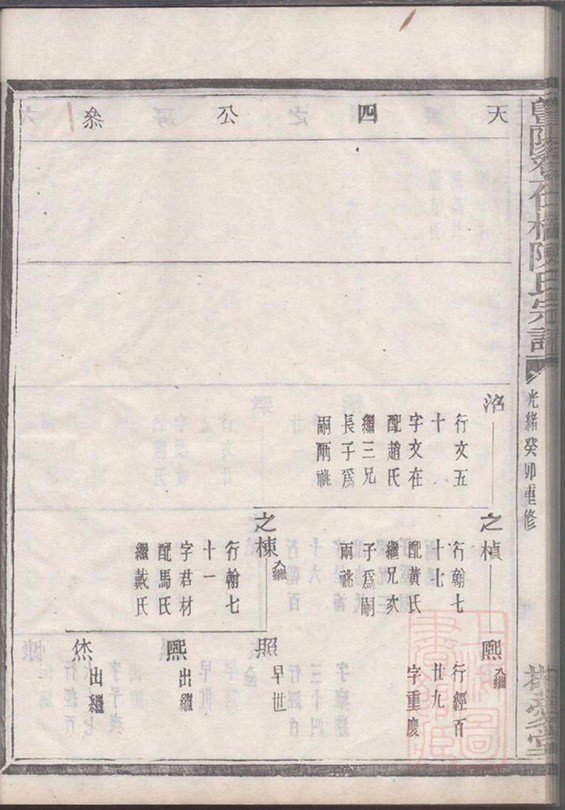 天四公系
洛
行文五
十一
字文在
配趙氏
繼三兄
長子為
嗣兩祧
之楨
行翰七
十七
配黃氏
繼兄次
子為嗣
兩祧
之棟
行翰七
十一
字君材
配馬氏
繼戴氏
熙
入繼
行經百
廿九
字重慶
照
早世
熙
出繼
烋
出繼
陳氏宗譜
光緒癸卯重修